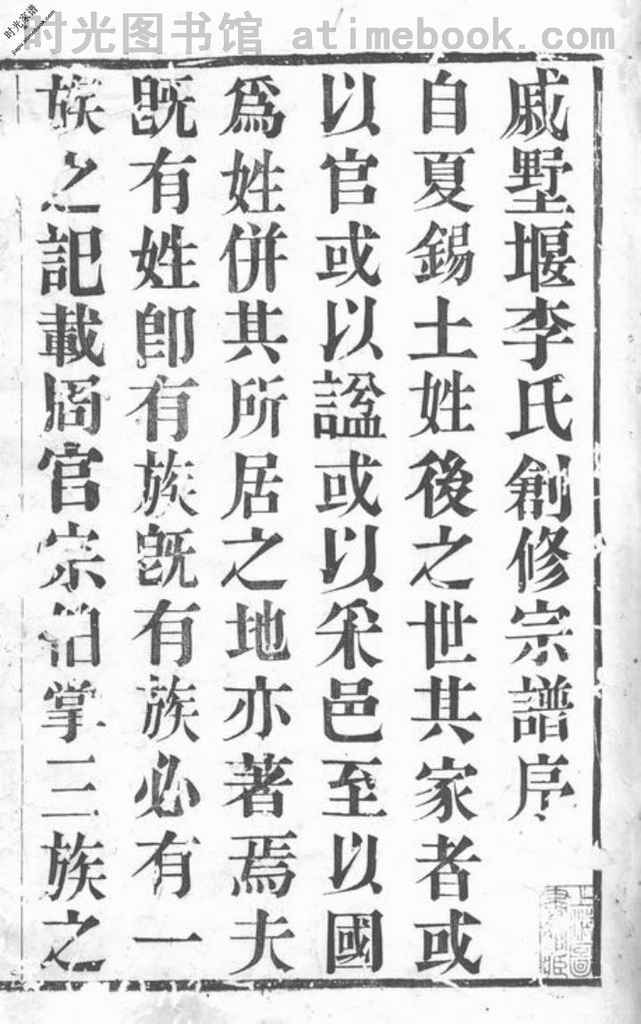 时光图书馆 atimebook.com
戚墅堰李氏創修宗譜序
自夏錫土姓後之世其家者或
以官或以諡或以采邑至以國
爲姓併其所居之地亦著焉夫
既有姓卽有族既有族必有一
族之記載周官宗伯掌三族之